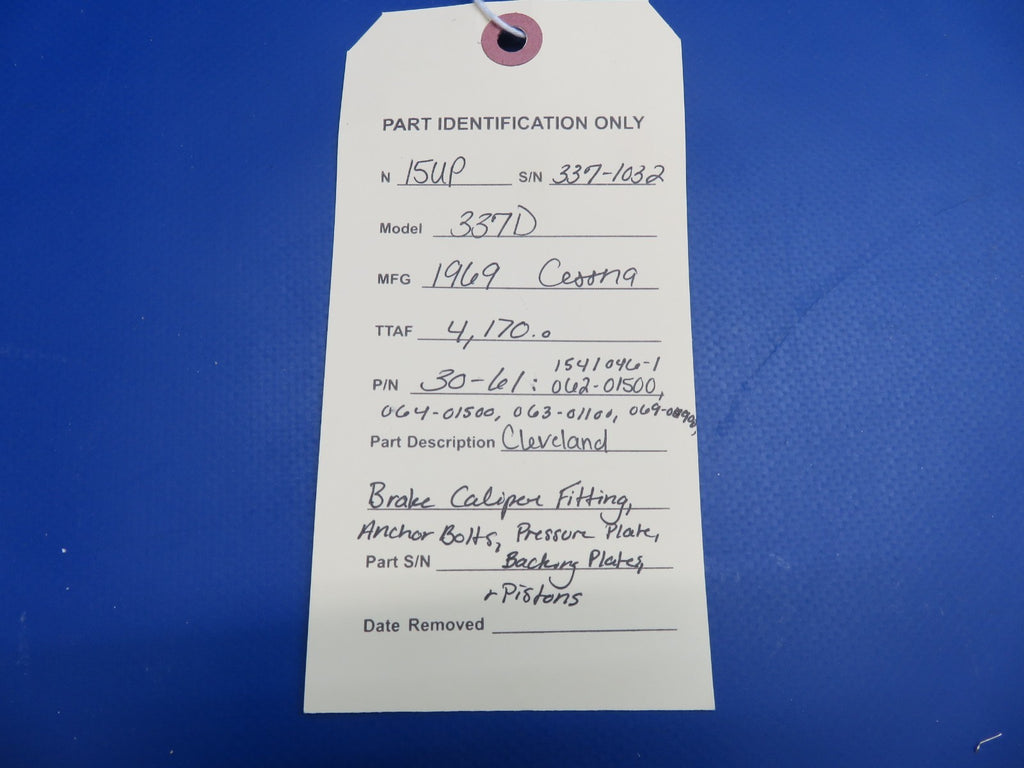 PART IDENTIFICATION ONLY
N 15UP S/N 337-1032
Model 337D
MFG 1969 Cessna
TTAF 4,170.0
1541046-1
P/N 30-61: 062-01500,
064-01500, 063-01100,
Part Description Cleveland
Brake Caliper Fitting,
Anchor Bolts, Pressure Plate,
Part S/N Backing Plates,
+ Pistons
Date Removed